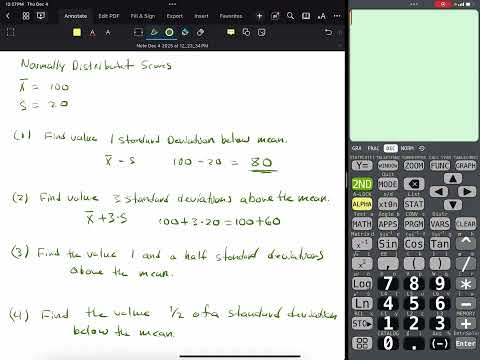 12:37PM Thu Dec 4
Annotate Edit PDF Fill & Sign Export Insert Favorites
Note Dec 4 2025 at 12_23_34 PM
Normally Distributed Scores
X̄ = 100
S = 20
(1) Find value 1 standard Deviation below mean.
X̄ - S 100 - 20 = 80
(2) Find value 3 standard deviations above the mean.
X̄ + 3·S 100 + 3·20 = 100 + 60
(3) Find the value 1 and a half standard deviations
above the mean.
(4) Find the value 1/2 of a standard deviation
below the mean.
GRA PRAC DEC MEMORY
Y= WINDOW ZOOM CALC FUNC GRAPH
2ND QUIT MODE Ins
A-LOCK Link List
ALPHA xtθn STAT
Test A Angle B DRAW C DISTR
MATH APPS PRGM VARS CLEAR
x⁻¹ Sin Cos Tan ^
x² , ( ) ÷
Log 7 8 9 *
Ln 4 5 6 -
RCL X L1 L2 L3 MEMORY
STO▸ 1 2 3 +
ON 0 . (-) Enter